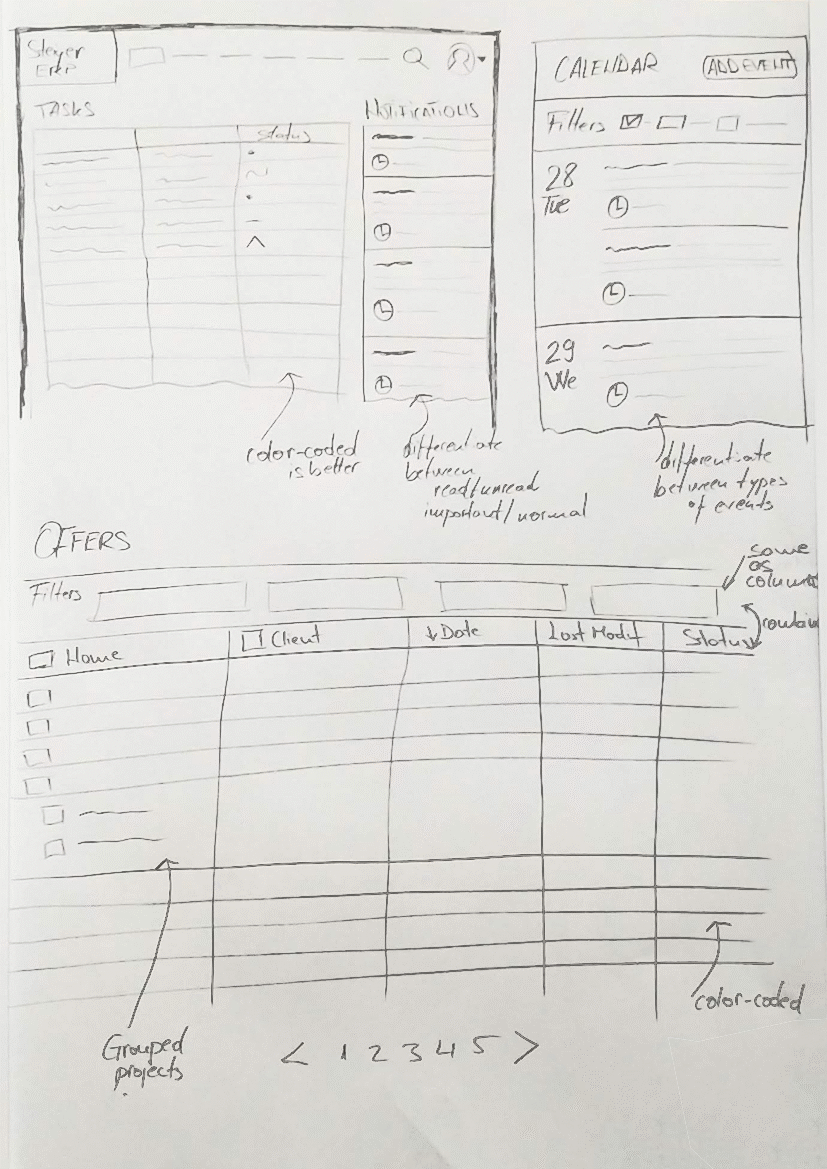 TASKS
Status
NOTIFICATIONS
color-coded
is better
differentiate
between
read/unread
important/normal
CALENDAR
ADD EVENT
Filters
28
Tue
29
We
differentiate
between types
of events
OFFERS
Filters
same
as
Name
Client
↓ Date
Last Modif
Status
Grouped
projects
color-coded
< 1 2 3 4 5 >